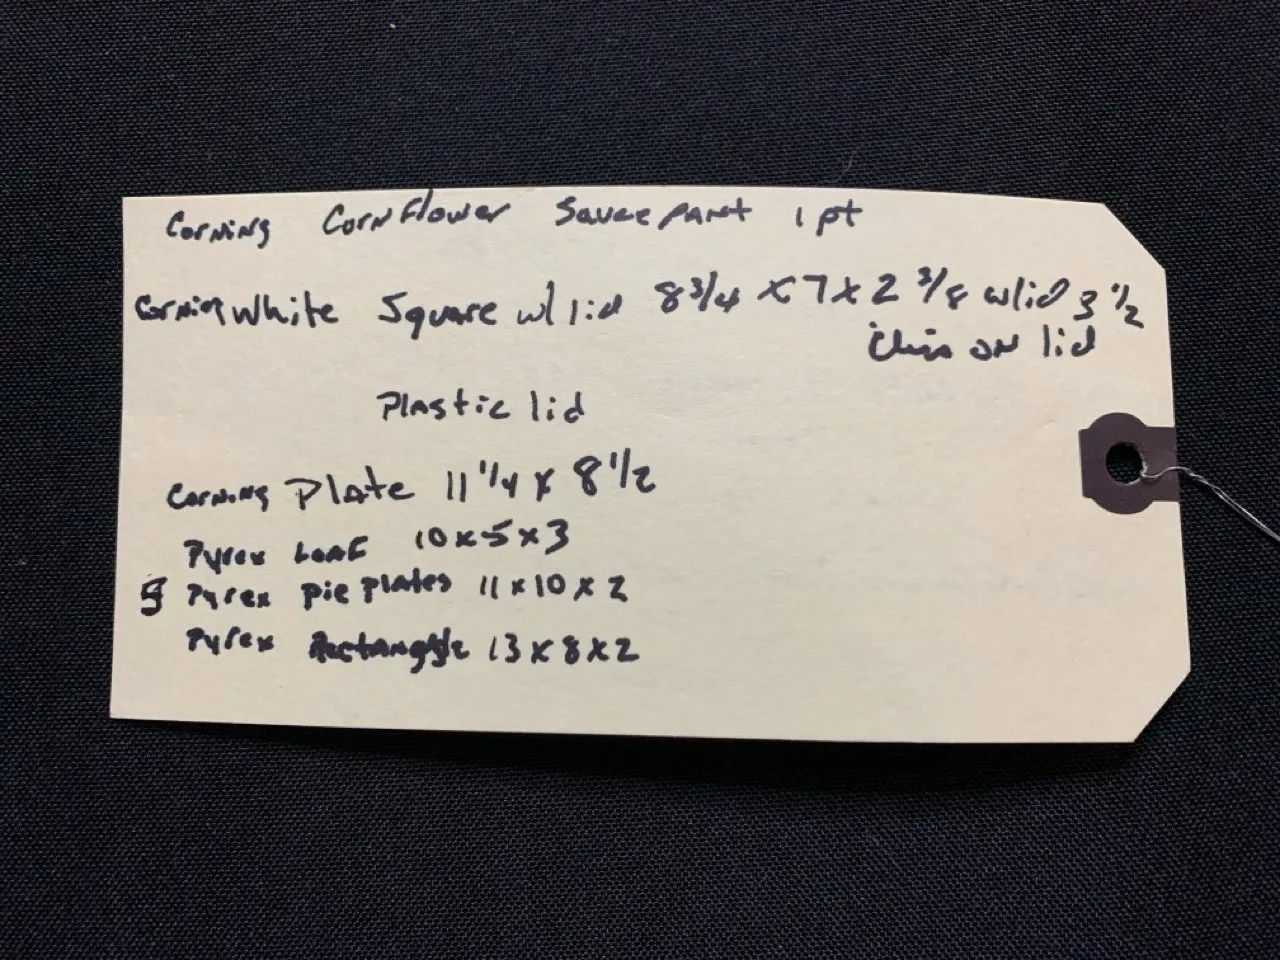 Corning CornFlower Saucepant 1 pt
Corning White Square w/ lid 8 3/4 x 7 x 2 3/8 w/lid 3 1/2
Chip on lid
Plastic lid
Corning Plate 11 1/4 x 8 1/2
Pyrex Loaf 10 x 5 x 3
Pyrex Pie Plates 11 x 10 x 2
Pyrex Rectangle 13 x 8 x 2